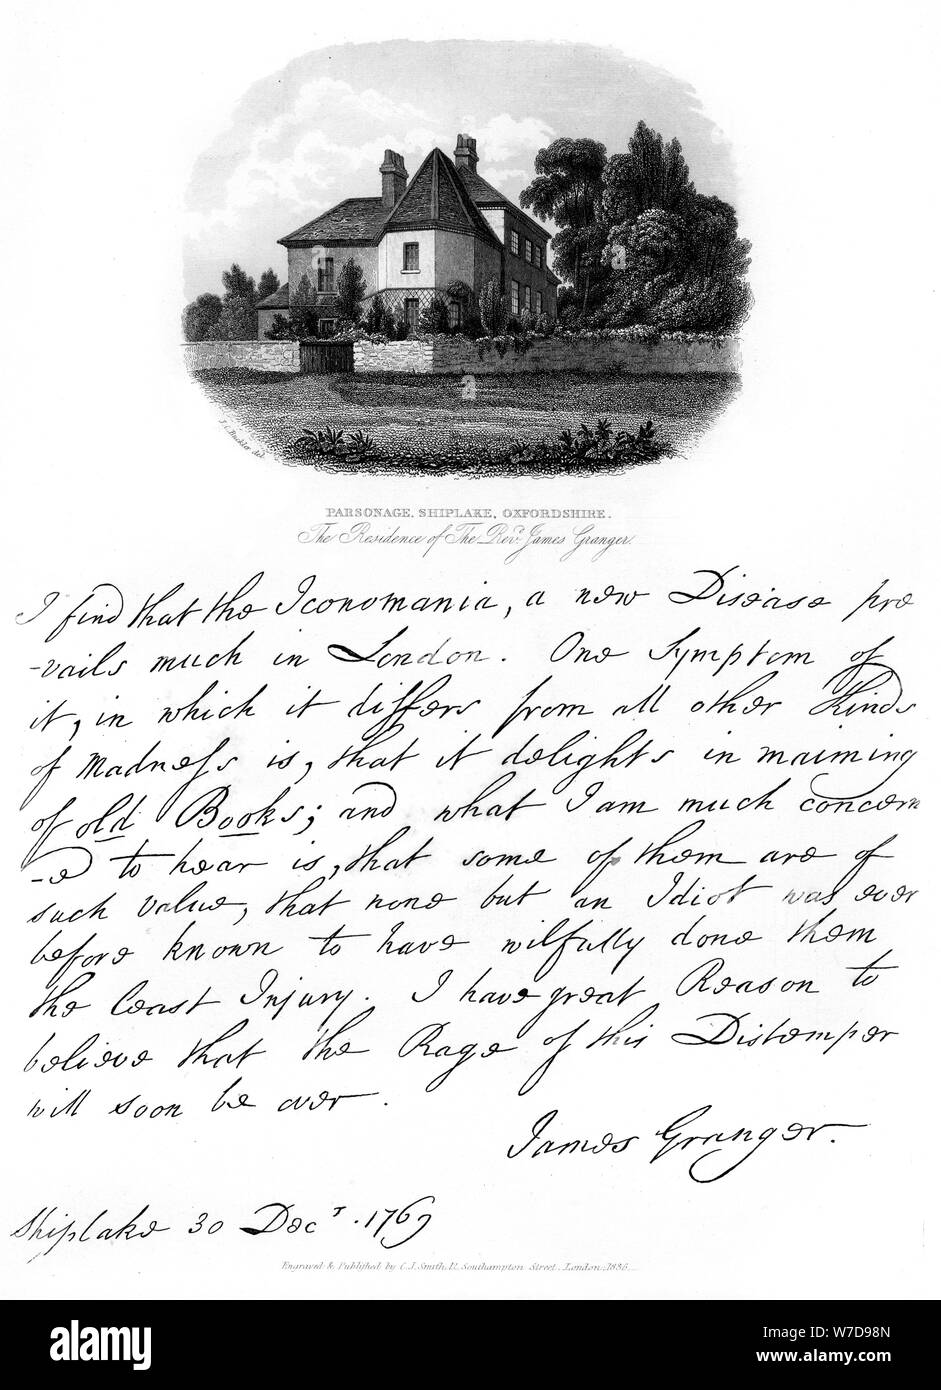 J.C. Buckler del.
PARSONAGE, SHIPLAKE, OXFORDSHIRE.
The Residence of The Revd. James Granger.
I find that the Iconomania, a new Disease pre
-vails much in London. One Symptom of
it, in which it differs from all other Kinds
of Madneſs is, that it delights in maiming
of old Books; and what I am much concern
-ed to hear is, that some of them are of
such Value, that none but an Idiot was ever
before known to have wilfully done them
the least Injury. I have great Reason to
believe that the Rage of this Distemper
will soon be over.
James Granger.
Shiplake 30 Decr. 1769
Engraved & Published by C.J. Smith, Southampton Street, London, 1836.
a alamy stock photo
alamy
Image ID: W7D98N
www.alamy.com